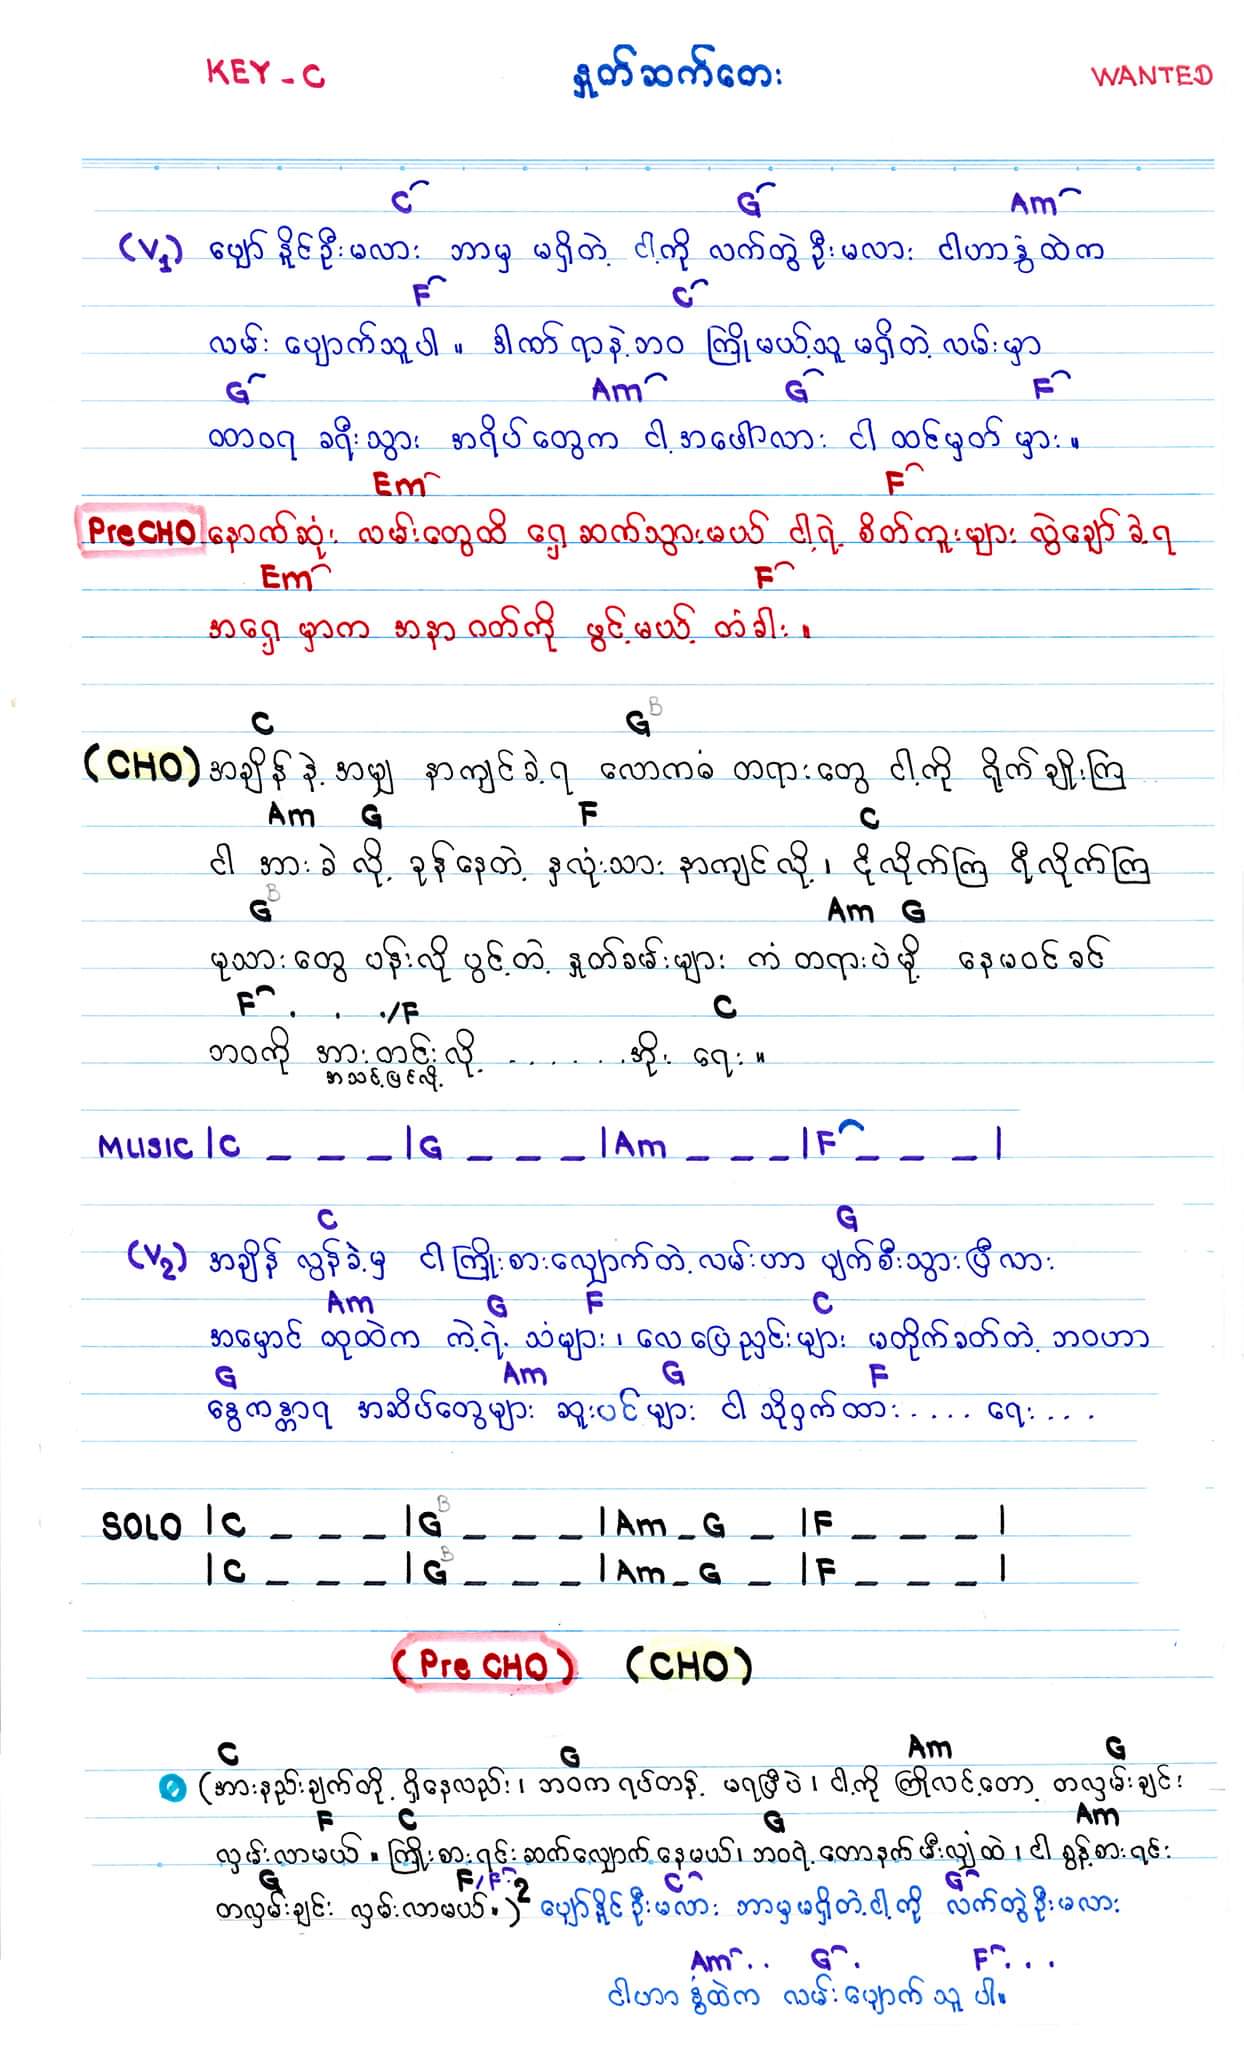 KEY - C နှုတ်ဆက်တေး WANTED
C G Am
(V1) ပျော်နိုင်ဦးမလား ဘာမှ မရှိတဲ့ ငါ့ကို လက်တွဲဦးမလား ငါဟာနွံထဲက
F C
လမ်း ပျောက်သူပါ ။ ဒါဏ်ရာနဲ့ဘဝ ကြိုမယ့်သူ မရှိတဲ့ လမ်းမှာ
G Am G F
ထာဝရ ခရီးသွား အရိပ်တွေက ငါ့အဖေါ်လား ငါ ထင်မှတ်မှား ။
Em F
Pre CHO နောက်ဆုံး လမ်းတွေထိ ရှေ့ဆက်သွားမယ် ငါ့ရဲ့ စိတ်ကူးများ လွဲချော်ခဲ့ရ
Em F
အရှေ့မှာက အနာဂတ်ကို ဖွင့်မယ့် တံခါး ။
C G B
(CHO) အချိန်နဲ့အမျှ နာကျင်ခဲ့ရ လောကဓံ တရားတွေ ငါ့ကို ရိုက်ချိုးကြ
Am G F C
ငါ အားခဲလို့ ခုန်နေတဲ့ နှလုံးသား နာကျင်လို့ ၊ ငိုလိုက်ကြ ရီလိုက်ကြ
G B Am G
မုသားတွေ ပန်းလိုပွင့်တဲ့ နှုတ်ခမ်းများ ကံတရားပဲမို့ နေမဝင်ခင်
F . . ./F C
ဘဝကို အားတင်းလို့ . . . . . . . အိုး ရေး ။
အသင့်ပြင်လို့
MUSIC |C _ _ _ |G _ _ _ |Am _ _ _ |F _ _ _ |
C G
(V2) အချိန် လွန်ခဲ့မှ ငါကြိုးစားလျှောက်တဲ့လမ်းဟာ ပျက်စီးသွားပြီလား
Am G F C
အမှောင်ထုထဲက ကဲ့ရဲ့သံများ ၊ လေပြေညှင်းများ မတိုက်ခတ်တဲ့ ဘဝဟာ
G Am G F
နွေကန္တာရ အဆိပ်တွေများ ဆူးပင်များ ငါ သိုဝှက်ထား . . . . . ရေး . . .
SOLO |C _ _ _ |G B _ _ _ |Am _ G _ |F _ _ _ |
|C _ _ _ |G B _ _ _ |Am _ G _ |F _ _ _ |
(Pre CHO) (CHO)
C G Am G
(အားနည်းချက်တို့ ရှိနေလည်း ၊ ဘဝက ရပ်တန့် မရပြီပဲ ၊ ငါ့ကို ကြိုလင့်တော့ တလှမ်းချင်း
F C G Am
လှမ်းလာမယ် ။ ကြိုးစားရင်းဆက်လျှောက်နေမယ်၊ ဘဝရဲ့ တောနက်မီးလျှံထဲ ၊ ငါ စွန့်စားရင်း
G F/F 2 C G
တလှမ်းချင်း လှမ်းလာမယ် ။ ) ပျော်နိုင်ဦးမလား ဘာမှမရှိတဲ့ငါ့ကို လက်တွဲဦးမလား
Am . . G . F . . .
ငါဟာ နွံထဲက လမ်းပျောက်သူ ပါ။